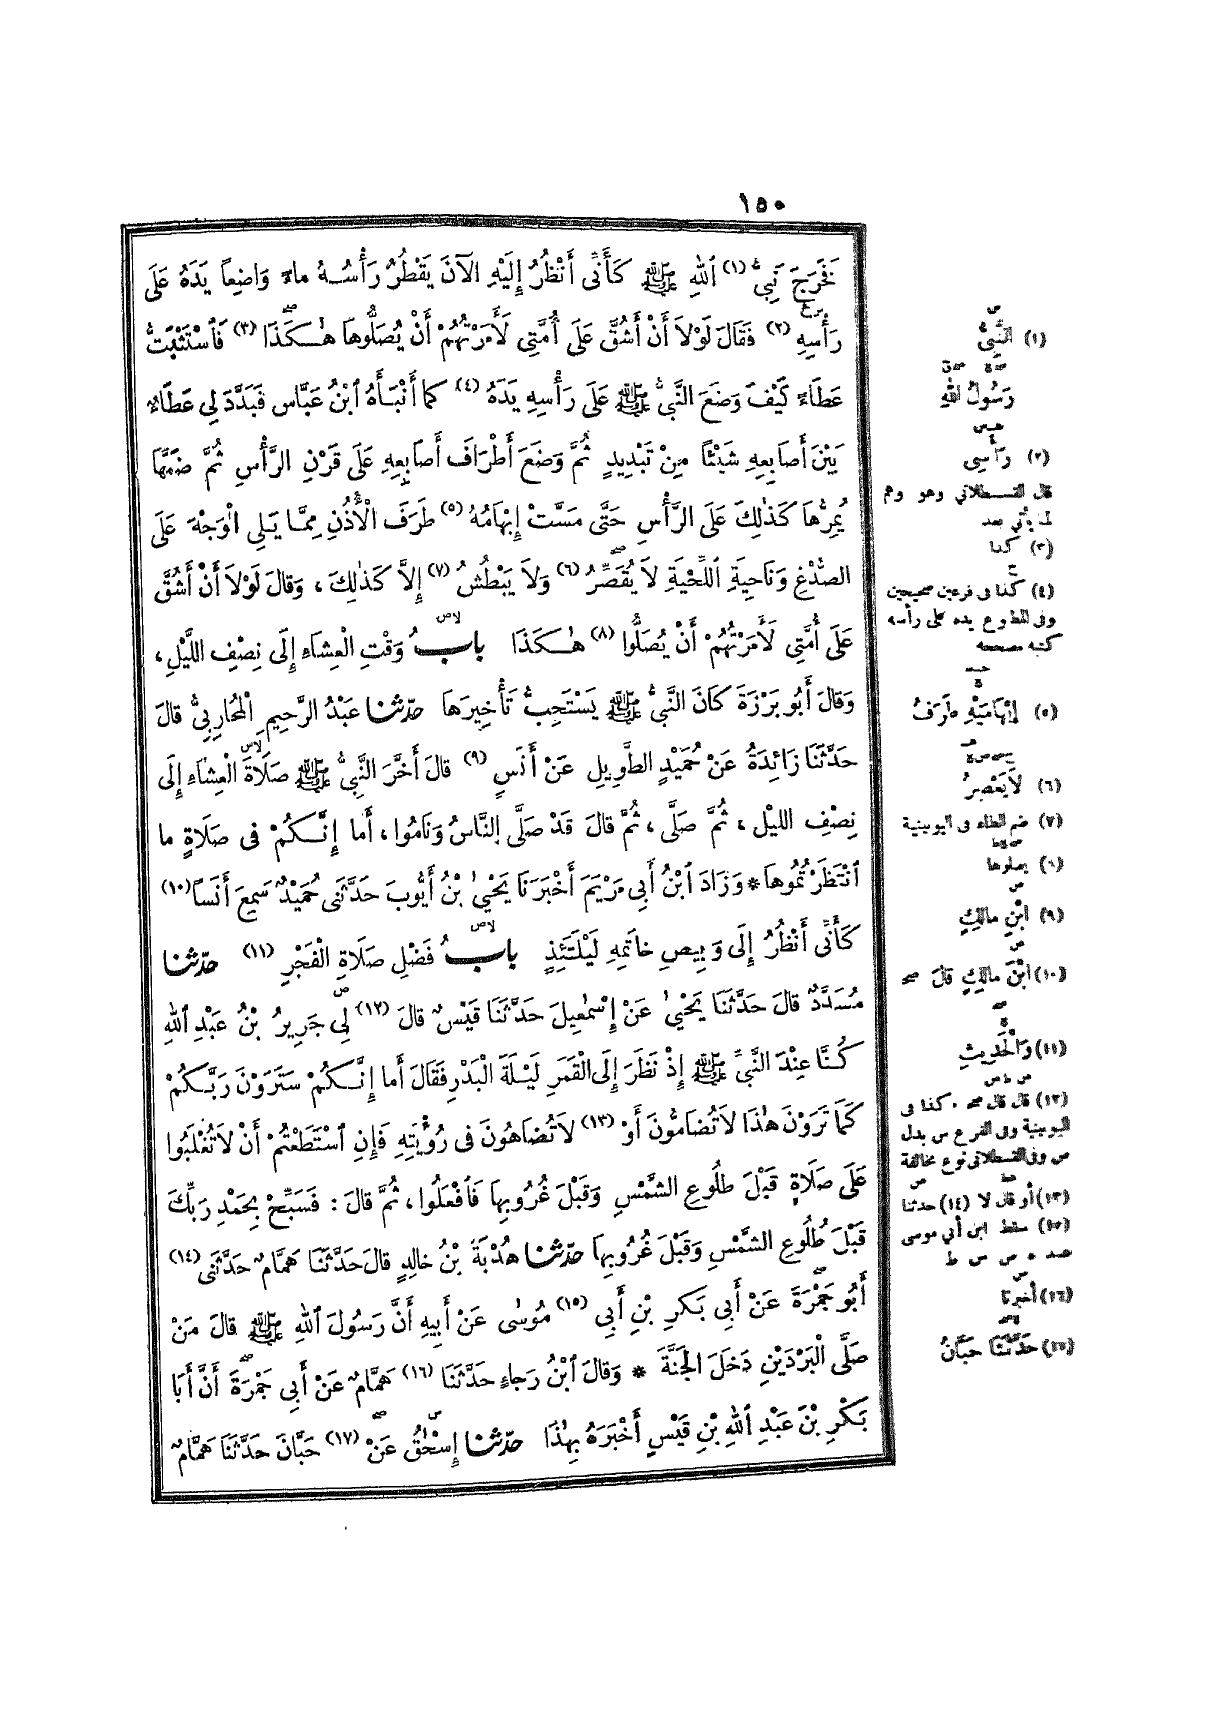 ١٥٠
فَخَرَجَ نَبِيُّ (١) اللهِ ﷺ كَأَنِّي أَنْظُرُ إِلَيْهِ الآنَ يَقْطُرُ رَأْسُهُ ماءً وَاضِعاً يَدَهُ عَلَى
رَأْسِهِ (٢) فَقَالَ لَوْلاَ أَنْ أَشُقَّ عَلَى أُمَّتِي لَأَمَرْتُهُمْ أَنْ يُصَلُّوهَا هٰكَذَا (٣) فَاسْتَثْبَتُّ
عَطَاءً كَيْفَ وَضَعَ النَّبِيُّ ﷺ عَلَى رَأْسِهِ يَدَهُ (٤) كما أَنْبَأَهُ ابْنُ عَبَّاسٍ فَبَدَّدَ لِي عَطَاءٌ
بَيْنَ أَصَابِعِهِ شَيْئًا مِنْ تَبْدِيدٍ ثُمَّ وَضَعَ أَطْرَافَ أَصَابِعِهِ عَلَى قَرْنِ الرَّأْسِ ثُمَّ ضَمَّهَا
يُمِرُّهَا كَذٰلِكَ عَلَى الرَّأْسِ حَتَّى مَسَّتْ إِبْهَامُهُ (٥) طَرَفَ الْأُذُنِ مِمَّا يَلِي الْوَجْهَ عَلَى
الصُّدْغِ وَنَاحِيَةِ اللِّحْيَةِ لاَ يُقَصِّرُ (٦) وَلاَ يَبْطُشُ (٧) إِلاَّ كَذٰلِكَ ، وَقالَ لَوْلاَ أَنْ أَشُقَّ
عَلَى أُمَّتِي لَأَمَرْتُهُمْ أَنْ يُصَلُّوا (٨) هٰكَذَا بابُ وَقْتِ الْعِشَاءِ إِلَى نِصْفِ اللَّيْلِ ،
وَقالَ أَبُو بَرْزَةَ كانَ النَّبِيُّ ﷺ يَسْتَحِبُّ تَأْخِيرَهَا حدّثنا عَبْدُ الرَّحِيمِ الْمُحَارِبِيُّ قالَ
حَدَّثَنَا زَائِدَةُ عَنْ حُمَيْدٍ الطَّوِيلِ عَنْ أَنَسٍ (٩) قالَ أَخَّرَ النَّبِيُّ ﷺ صَلاَةَ الْعِشَاءِ إِلَى
نِصْفِ الليْلِ ، ثُمَّ صَلَّى ، ثُمَّ قالَ قَدْ صَلَّى النَّاسُ وَنَامُوا ، أَما إِنَّكُمْ فِى صَلاَةٍ ما
انْتَظَرْتُمُوهَا * وَزَادَ ابْنُ أَبِي مَرْيَمَ أَخْبَرَنَا يَحْيىٰ بْنُ أَيُّوبَ حَدَّثَنِى حُمَيْدٌ سَمِعَ أَنَساً (١٠)
كَأَنِّى أَنْظُرُ إِلَى وَبِيصِ خاتَمِهِ لَيْلَتَئِذٍ بابُ فَضْلِ صَلاَةِ الْفَجْرِ (١١) حدّثنا
مُسَدَّدٌ قالَ حَدَّثَنَا يَحْيىٰ عَنْ إِسْمٰعِيلَ حَدَّثَنَا قَيْسٌ قالَ (١٢) لِى جَرِيرُ بْنُ عَبْدِ اللهِ
كُنَّا عِنْدَ النَّبِيِّ ﷺ إِذْ نَظَرَ إِلَى الْقَمَرِ لَيْلَةَ الْبَدْرِ فَقَالَ أَما إِنَّكُمْ سَتَرَوْنَ رَبَّكُمْ
كَمَا تَرَوْنَ هٰذَا لاَ تُضَامُّونَ أَوْ (١٣) لاَ تُضَاهُونَ فِى رُؤْيَتِهِ فَإِنِ اسْتَطَعْتُمْ أَنْ لاَ تُغْلَبُوا
عَلَى صَلاَةٍ قَبْلَ طُلُوعِ الشَّمْسِ وَقَبْلَ غُرُوبِهَا فَافْعَلُوا ، ثُمَّ قالَ : فَسَبِّحْ بِحَمْدِ رَبِّكَ
قَبْلَ طُلُوعِ الشَّمْسِ وَقَبْلَ غُرُوبِهَا حدّثنا هُدْبَةُ بْنُ خالِدٍ قالَ حَدَّثَنَا هَمَّامٌ حَدَّثَنِى (١٤)
أَبُو جَمْرَةَ عَنْ أَبِى بَكرِ بْنِ أَبِى (١٥) مُوسٰى عَنْ أَبِيهِ أَنَّ رَسُولَ اللهِ ﷺ قالَ مَنْ
صَلَّى الْبَرْدَيْنِ دَخَلَ الْجَنَّةَ * وَقالَ ابْنُ رَجاءٍ حَدَّثَنَا (١٦) هَمَّامٌ عَنْ أَبِى جَمْرَةَ أَنَّ أَبَا
بَكْرِ بْنَ عَبْدِ اللهِ بْنِ قَيْسٍ أَخْبَرَهُ بِهٰذَا حدّثنا إِسْحٰقُ عَنْ (١٧) حَبَّانَ حَدَّثَنَا هَمَّامٌ
(١) النَّبِيُّ
رَسُولُ اللهِ
(٢) رَأْسِى
قال القسطلاني وهو وهم
لما يأتي بعد
(٣) كذا
(٤) كذا فى فرعين صحيحين
وفى المطبوع يده على رأسه
كتبه مصححه
(٥) إِبْهَامَيْهِ طَرَفُ
(٦) لاَ يَعْصِرُ
(٧) ضم الطاء فى اليونينية
(٨) يصلوها
(٩) ابْنِ مالِكٍ
(١٠) ابْنَ مالِكٍ قالَ
(١١) وَالْحَدِيثِ
(١٢) قال قال صح . كذا فى
اليونينية وفى الفرع س بدل
ص وفى القسطلانى نوع مخالفة
(١٣) أو قال لا (١٤) حدثنا
(١٥) سقط ابن أبي موسى
عند ٥ ص س ط
(١٦) أخبرنا
(١٧) حَدَّثَنَا حَبَّانُ